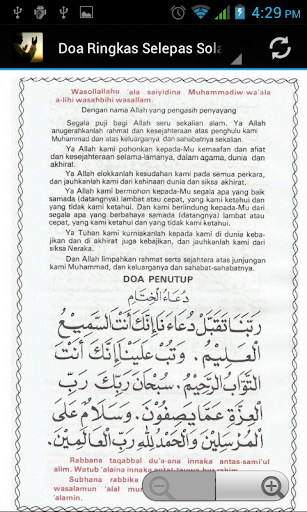 4:29 PM
Doa Ringkas Selepas Sola
Wasollallahu 'ala saiyidina Muhammadiw-wa'ala
a-lihi wasahbihi wasallam.
Dengan nama Allah yang pengasih penyayang
Segala puji bagi Allah seru sekalian alam. Ya Allah
anugerahkanlah rahmat dan kesejahteraan atas penghulu kami
Muhammad dan atas keluarganya dan sahabatnya sekelian.
Ya Allah kami pohonkan kepada-Mu kemaafan dan afiat
dan kesejahteraan selama-lamanya, dalam agama, dunia dan
akhirat.
Ya Allah elokkanlah kesudahan kami pada semua perkara,
dan jauhkanlah kami dari kehinaan dunia dan siksa akhirat.
Ya Allah kami bermohon kepada-Mu segala apa yang baik
samada (datangnya) lambat atau cepat, yang kami ketahui dan
yang tidak kami ketahui. Dan kami berlindung kepada-Mu dari
segala apa yang berbahaya samada (datangnya) lambat atau
cepat, yang kami ketahui dan yang tidak kami ketahui.
Ya Tuhan kami kurniakanlah kepada kami di dunia keba-
jikan dan di akhirat juga kebajikan, dan jauhkanlah kami dari
siksa Neraka.
Dan Allah limpahkan rahmat serta sejahtera atas junjungan
kami Muhammad, dan keluarganya dan sahabat-sahabatnya.
DOA PENUTUP
دُعَاءُ الْخِتَامِ
رَبَّنَا تَقَبَّلْ دُعَاءَنَا إِنَّكَ أَنْتَ السَّمِيعُ
الْعَلِيمُ. وَتُبْ عَلَيْنَا إِنَّكَ أَنْتَ
التَّوَّابُ الرَّحِيمُ. سُبْحَانَ رَبِّكَ رَبِّ
الْعِزَّةِ عَمَّا يَصِفُونَ. وَسَلَامٌ عَلَى
الْمُرْسَلِينَ وَالْحَمْدُ لِلَّهِ رَبِّ الْعَالَمِينَ.
Rabbana taqabbal du'a-ana innaka antas-sami'ul
alim. Watub 'alaina innaka antat-tauwa
Subhana rabbika
wasalamun 'alal mursa
'alamin.